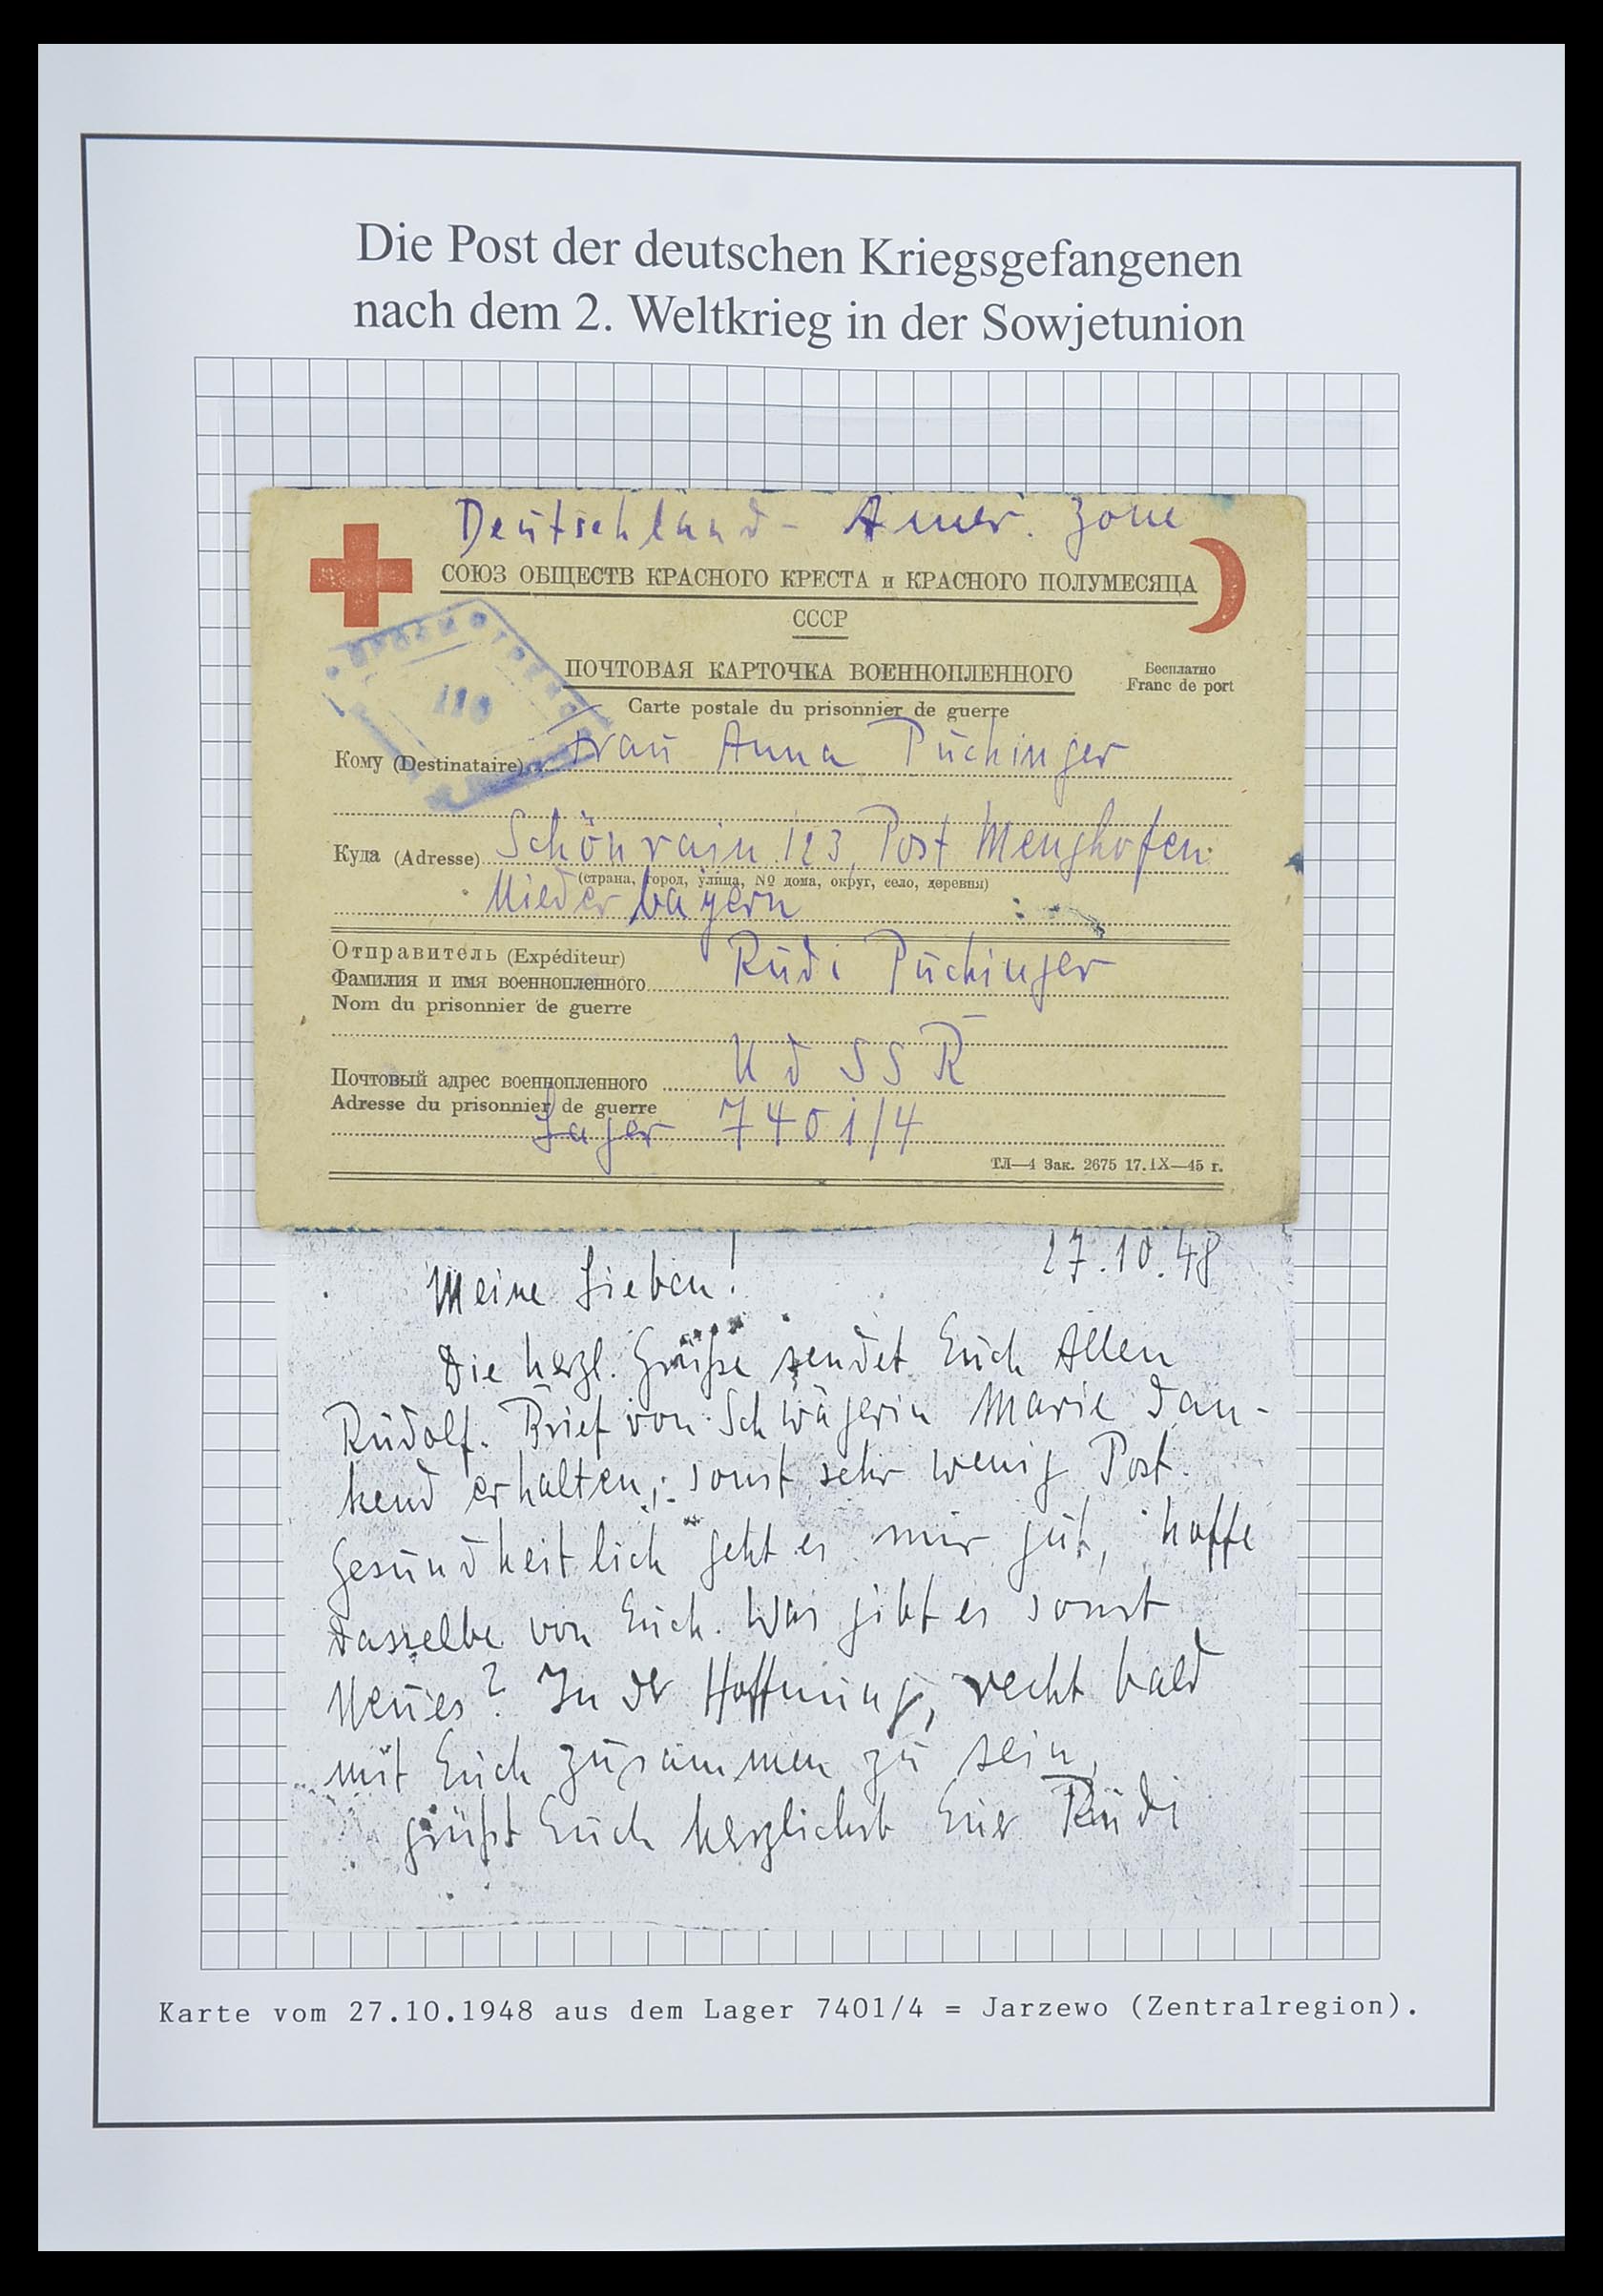 Die Post der deutschen Kriegsgefangenen
nach dem 2. Weltkrieg in der Sowjetunion
Deutschland - Amer. Zone
СОЮЗ ОБЩЕСТВ КРАСНОГО КРЕСТА и КРАСНОГО ПОЛУМЕСЯЦА
СССР
ПОЧТОВАЯ КАРТОЧКА ВОЕННОПЛЕННОГО
Бесплатно
Franc de port
Carte postale du prisonnier de guerre
ПРОСМОТРЕНО
110
Кому (Destinataire) Frau Anna Puchinger
Куда (Adresse) Schönrain 123, Post Menghofen
(страна, город, улица, № дома, округ, село, деревня)
Niederbayern
Отправитель (Expéditeur)
Фамилия и имя военнопленного Rudi Puchinger
Nom du prisonnier de guerre
Почтовый адрес военнопленного UdSSR
Adresse du prisonnier de guerre
Lager 7401/4
ТЛ—4 Зак. 2675 17.IX—45 г.
27.10.48
Meine Lieben!
Die herzl. Grüße sendet Euch Allen
Rudolf. Brief von Schwägerin Marie dan-
kend erhalten, sonst sehr wenig Post.
Gesundheitlich geht es mir gut, hoffe
dasselbe von Euch. Was gibt es sonst
Neues? In der Hoffnung, recht bald
mit Euch zusammen zu sein,
grüßt Euch herzlichst Euer Rudi
Karte vom 27.10.1948 aus dem Lager 7401/4 = Jarzewo (Zentralregion).